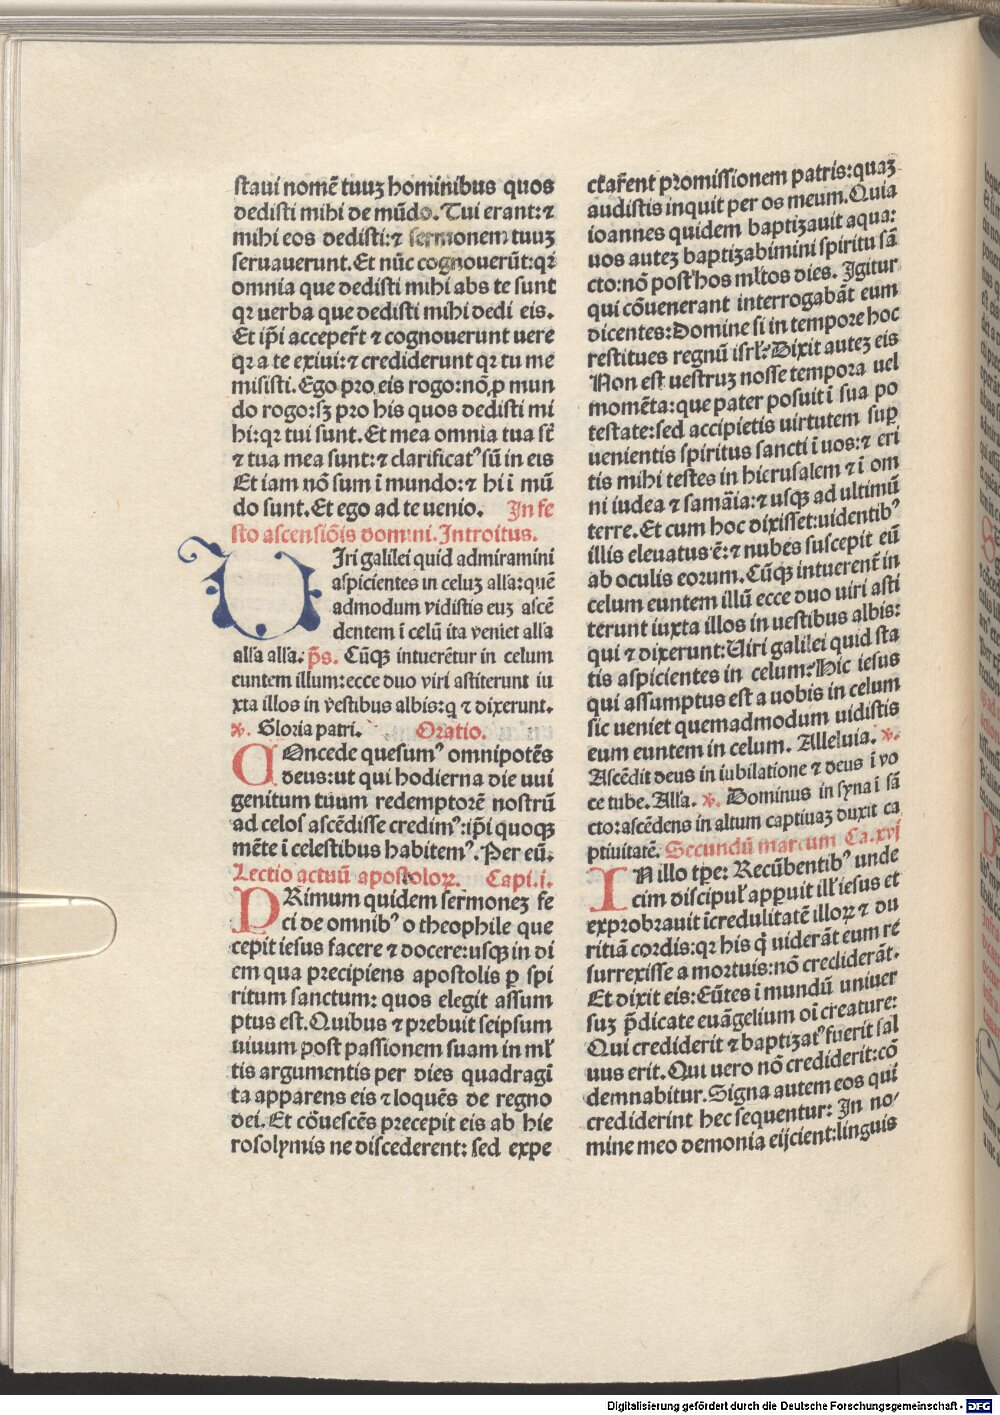 staui nomē tuuꝫ hominibus quos
dedisti mihi de mūdo. Tui erant: ⁊
mihi eos dedisti: ⁊ sermonem tuuꝫ
seruauerunt. Et nūc cognouerūt: qꝛ
omnia que dedisti mihi abs te sunt
qꝛ uerba que dedisti mihi dedi eis.
Et ip̄i acceper̄t ⁊ cognouerunt uere
qꝛ a te exiui: ⁊ crediderunt qꝛ tu me
misisti. Ego pro eis rogo: nō ꝓ mun
do rogo: sꝫ pro his quos dedisti mi
hi: qꝛ tui sunt. Et mea omnia tua st̄
⁊ tua mea sunt: ⁊ clarificatꝰ sū in eis
Et iam nō sum ī mundo: ⁊ hi ī mū
do sunt. Et ego ad te uenio. In fe
sto ascensiōis domini. Introitus.
Uiri galilei quid admiramini
aspicientes in celuꝫ alła: quē
admodum vidistis euꝫ ascē
dentem ī celū ita veniet alła
alła alła. p̄s. Cūqꝫ intuerētur in celum
euntem illum: ecce duo viri astiterunt iu
xta illos in vestibus albis: q ⁊ dixerunt.
℣. Gloria patri. Oratio.
COncede quesumꝰ omnipotēs
deus: ut qui hodierna die uni
genitum tuum redemptorē nostrū
ad celos ascēdisse credimꝰ: ip̄i quoqꝫ
mēte ī celestibus habitemꝰ. Per eū.
Lectio actuū apostoloꝝ. Capi. i.
PRimum quidem sermoneꝫ fe
ci de omnibꝰ o theophile que
cepit iesus facere ⁊ docere: usqꝫ in di
em qua precipiens apostolis ꝑ spi
ritum sanctum: quos elegit assum
ptus est. Quibus ⁊ prebuit seipsum
uiuum post passionem suam in mł
tis argumentis per dies quadragī
ta apparens eis ⁊ loquēs de regno
dei. Et cōuescēs precepit eis ab hie
rosolymis ne discederent: sed expe
ctar̄ent promissionem patris: quaꝫ
audistis inquit per os meum. Quia
ioannes quidem baptizauit aqua:
uos auteꝫ baptizabimini spiritu sā
cto: nō post hos mltos dies. Igitur
qui cōuenerant interrogabāt eum
dicentes: Domine si in tempore hoc
restitues regnū isrł? Dixit auteꝫ eis
Non est uestruꝫ nosse tempora uel
momēta: que pater posuit ī sua po
testate: sed accipietis uirtutem suꝑ
uenientis spiritus sancti ī uos: ⁊ eri
tis mihi testes in hierusalem ⁊ ī om
ni iudea ⁊ samāia: ⁊ usqꝫ ad ultimū
terre. Et cum hoc dixisset: uidentibꝰ
illis eleuatus ē: ⁊ nubes suscepit eū
ab oculis eorum. Cūqꝫ intuerent̄ in
celum euntem illū ecce duo uiri asti
terunt iuxta illos in uestibus albis:
qui ⁊ dixerunt: Uiri galilei quid sta
tis aspicientes in celum? Hic iesus
qui assumptus est a uobis in celum
sic ueniet quemadmodum uidistis
eum euntem in celum. Alleluia. ℣.
Ascēdit deus in iubilatione ⁊ deus ī vo
ce tube. Alła. ℣. Dominus in syna ī sā
cto: ascēdens in altum captiuaꝫ duxit ca
ptiuitatē. Secundū marcum Ca. xvj
IN illo tꝑe: Recūbentibꝰ unde
cim discipuł apꝑuit ilł iesus et
exprobrauit īcredulitatē illoꝝ ⁊ du
ritiā cordis: qꝛ his q̄ uiderāt eum re
surrexisse a mortuis: nō crediderāt.
Et dixit eis: Eūtes ī mundū uniuer
suꝫ p̄dicate euāgelium oī creature:
Qui crediderit ⁊ baptizatꝰ fuerit sal
uus erit. Qui uero nō crediderit: cō
demnabitur. Signa autem eos qui
crediderint hec sequentur: In no/
mine meo demonia eijcient: linguis
Digitalisierung gefördert durch die Deutsche Forschungsgemeinschaft - DFG